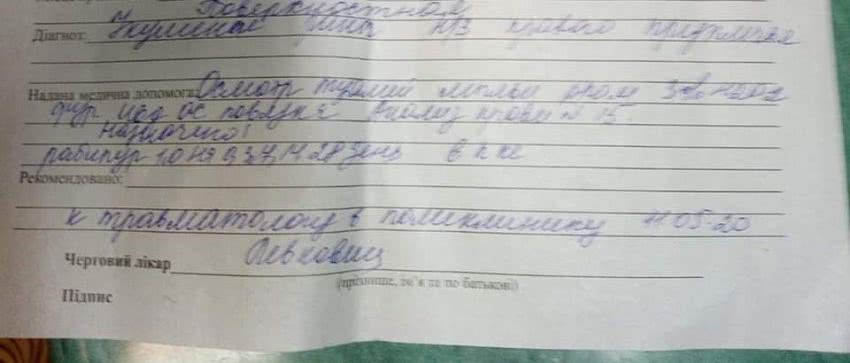 Поверхностная
Діагноз: Укушенная рана н/з правого предплечья
Надана медична допомога: Осмотр туалет раны 3% H2O2
фур. йод ас повязка Анализ крови № 15.
Назначено:
рабипур 1,0 на 0 3 7, 14 28 день в п ке
Рекомендовано:
к травматологу в поликлинику 11 05-20
Черговий лікар Левкович
(прізвище, ім'я та по батькові)
Підпис